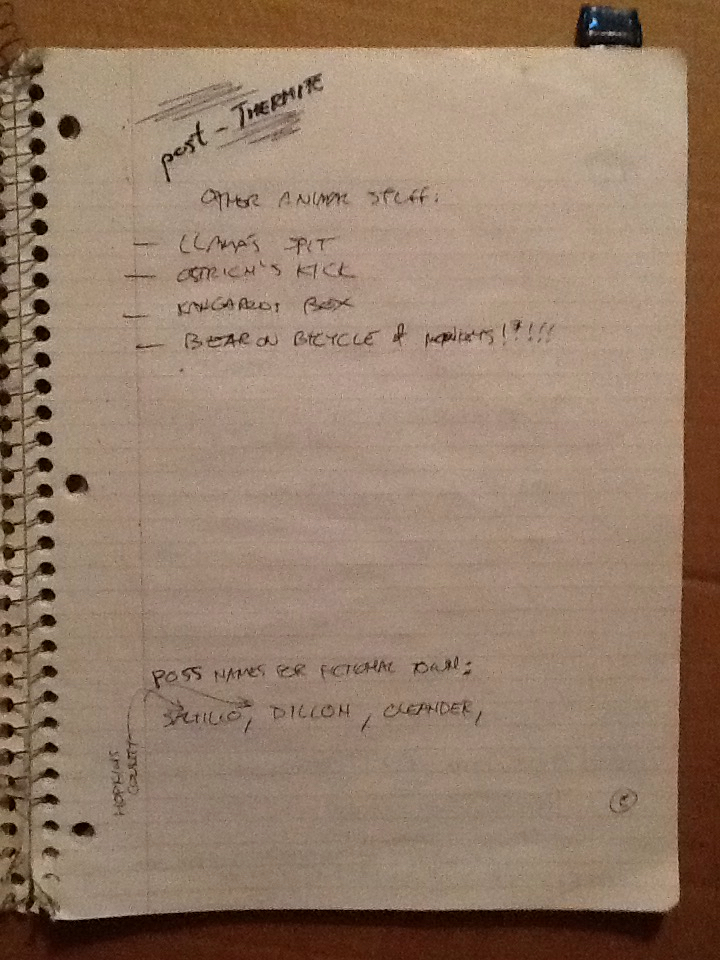 post - THERMITE
OTHER ANIMAL STUFF:
— LLAMA'S SPIT
— OSTRICH'S KICK
— KANGAROOS BOX
— BEAR ON BICYCLE & MONKEYS!?!!!
POSS NAMES FOR FICTIONAL TOWN:
SALTILLO, DILLON, OLEANDER,
HOPKINS
COUNTY